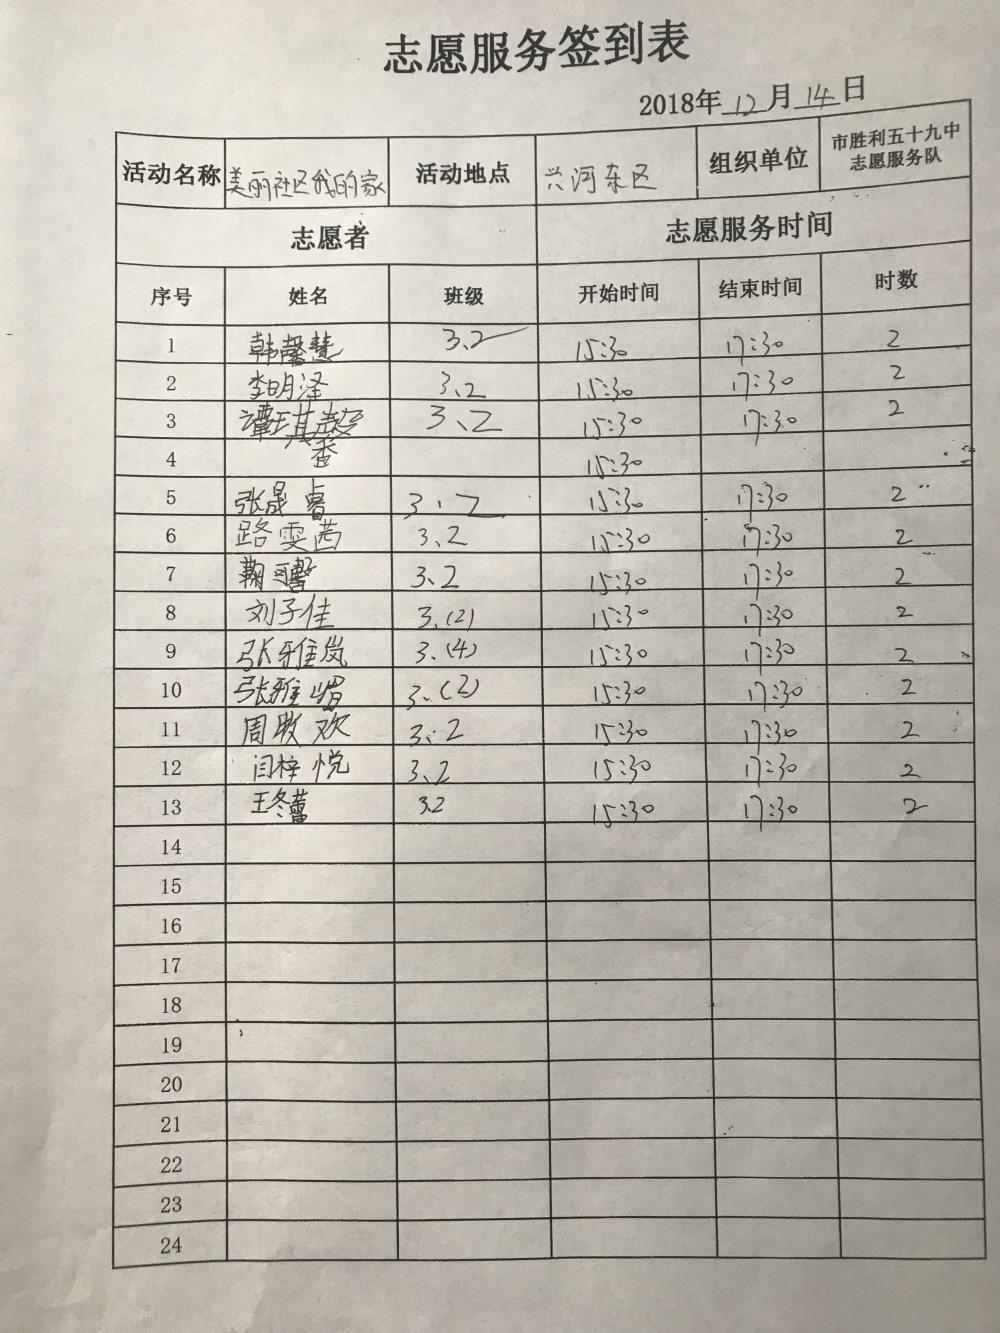 志愿服务签到表
2018年12月14日
活动名称 美丽社区我的家 活动地点 兴河东区 组织单位 市胜利五十九中
志愿服务队
志愿者 志愿服务时间
序号 姓名 班级 开始时间 结束时间 时数
1 韩馨慧 3.2 15:30 17:30 2
2 李明泽 3、2 15:30 17:30 2
3 谭 3、2 15:30 17:30 2
4 香 15:30
5 张晟睿 3、2 15:30 17:30 2
6 路雯茜 3.2 15:30 17:30 2
7 3、2 15:30 17:30 2
8 刘子佳 3.(2) 15:30 17:30 2
9 张雅岚 3.(4) 15:30 17:30 2
10 张雅嵋 3.(2) 15:30 17:30 2
11 周牧欢 3、2 15:30 17:30 2
12 闫梓悦 3.2 15:30 17:30 2
13 王冬蕾 3.2 15:30 17:30 2
14
15
16
17
18
19
20
21
22
23
24